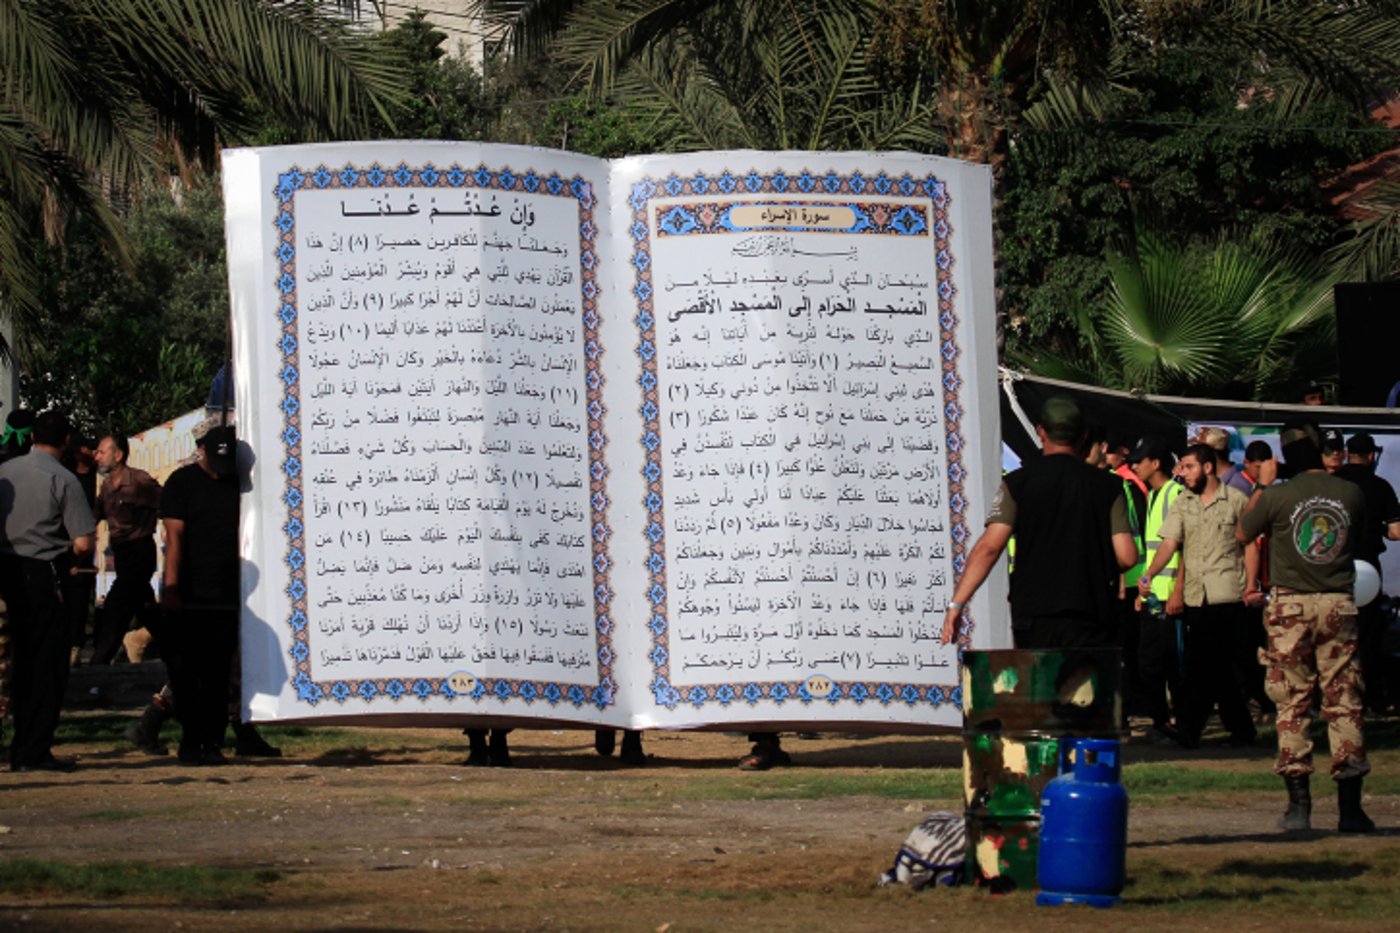 سورة الإسراء
بسم الله الرحمن الرحيم
سبحان الذي أسرى بعبده ليلًا من
المسجد الحرام إلى المسجد الأقصى
الذي باركنا حوله لنريه من آياتنا إنه هو
السميع البصير (١) وآتينا موسى الكتاب وجعلناه
هدى لبني إسرائيل ألا تتخذوا من دوني وكيلًا (٢)
ذرية من حملنا مع نوح إنه كان عبدًا شكورًا (٣)
وقضينا إلى بني إسرائيل في الكتاب لتفسدن في
الأرض مرتين ولتعلن علوًا كبيرًا (٤) فإذا جاء وعد
أولاهما بعثنا عليكم عبادًا لنا أولي بأس شديد
فجاسوا خلال الديار وكان وعدًا مفعولًا (٥) ثم رددنا
لكم الكرة عليهم وأمددناكم بأموال وبنين وجعلناكم
أكثر نفيرًا (٦) إن أحسنتم أحسنتم لأنفسكم وإن
أسأتم فلها فإذا جاء وعد الآخرة ليسئوا وجوهكم
وليدخلوا المسجد كما دخلوه أول مرة وليتبروا ما
علوا تتبيرًا (٧) عسى ربكم أن يرحمكم
٢٨٢
وَإِنْ عُدْتُمْ عُدْنَا
وجعلنا جهنم للكافرين حصيرًا (٨) إن هذا
القرآن يهدي للتي هي أقوم ويبشر المؤمنين الذين
يعملون الصالحات أن لهم أجرًا كبيرًا (٩) وأن الذين
لا يؤمنون بالآخرة أعتدنا لهم عذابًا أليمًا (١٠) ويدع
الإنسان بالشر دعاءه بالخير وكان الإنسان عجولًا
(١١) وجعلنا الليل والنهار آيتين فمحونا آية الليل
وجعلنا آية النهار مبصرة لتبتغوا فضلًا من ربكم
ولتعلموا عدد السنين والحساب وكل شيء فصلناه
تفصيلًا (١٢) وكل إنسان ألزمناه طائره في عنقه
ونخرج له يوم القيامة كتابًا يلقاه منشورًا (١٣) اقرأ
كتابك كفى بنفسك اليوم عليك حسيبًا (١٤) من
اهتدى فإنما يهتدي لنفسه ومن ضل فإنما يضل
عليها ولا تزر وازرة وزر أخرى وما كنا معذبين حتى
نبعث رسولًا (١٥) وإذا أردنا أن نهلك قرية أمرنا
مترفيها ففسقوا فيها فحق عليها القول فدمرناها تدميرًا
٢٨٣